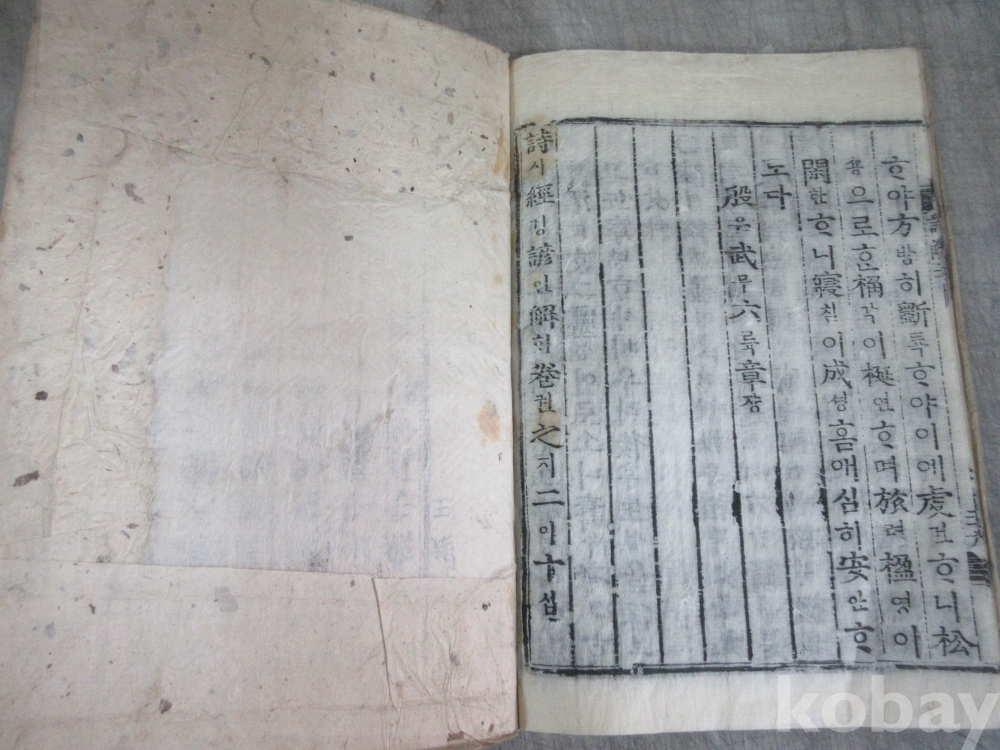 ᄒᆞ야方방히斲ᄒᆞ야이에虔건ᄒᆞ니松
숑으로ᄒᆞᆫ桷각이梴연ᄒᆞ며旅려楹영이
閑한ᄒᆞ니寢침이成셩홈애심히安안ᄒᆞ
도다
殷은武무六륙章쟝
詩시經경諺언解ᄒᆡ卷권之지二이十십
kobay